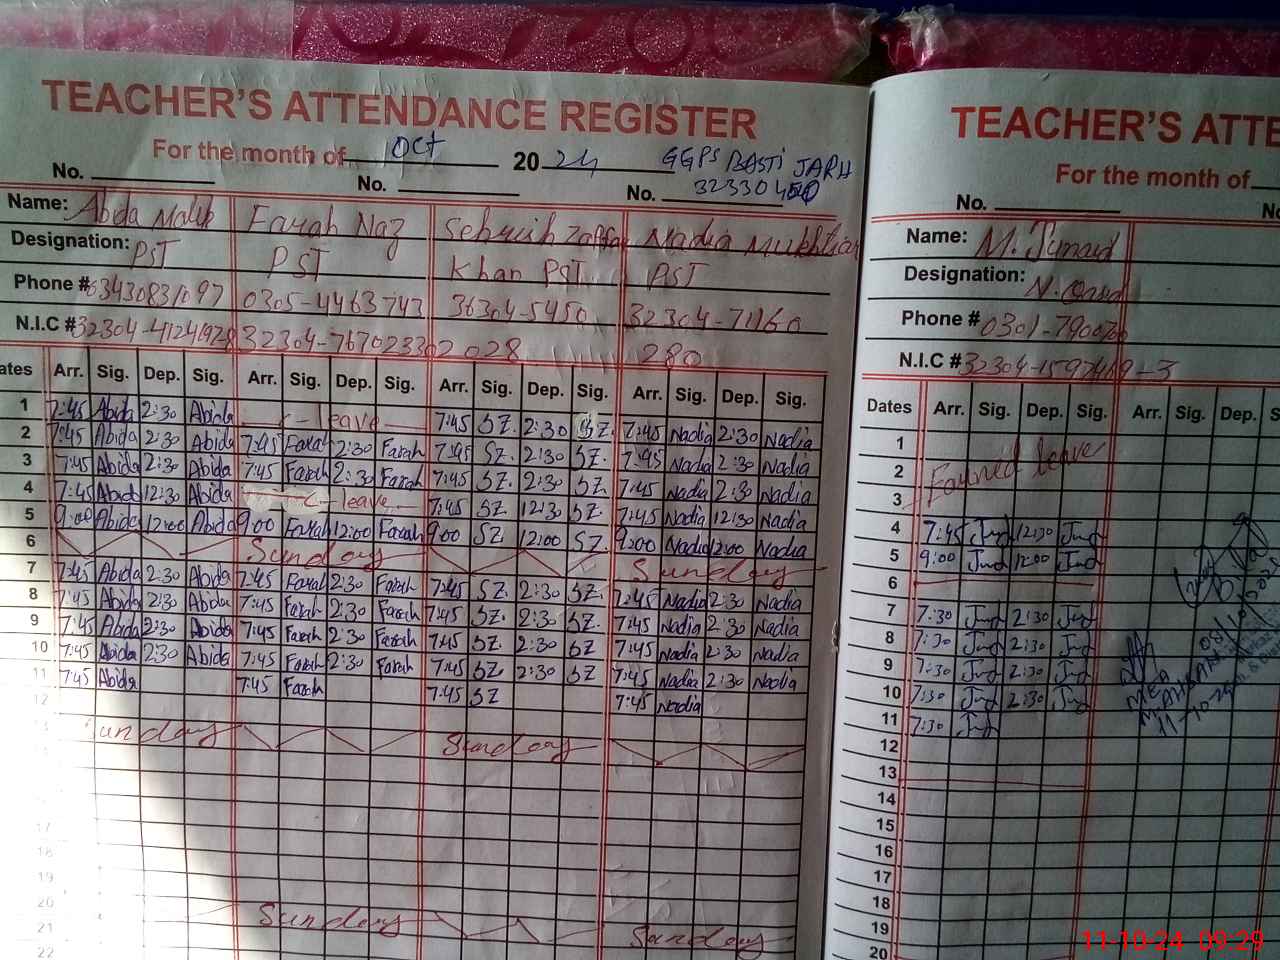 TEACHER'S ATTENDANCE REGISTER
For the month of Oct 2024 GGPS BASTI JARH
No. No. No. 32330400
Name: Abida Malik Farah Naz Sehrish Zaffar Nadia Mukhtiar
Designation: PST PST Khan PST PST
Phone # 0305-4463743 36304-5450 32304-71160
N.I.C # 2028 280
Dates Arr. Sig. Dep. Sig. Arr. Sig. Dep. Sig. Arr. Sig. Dep. Sig. Arr. Sig. Dep. Sig.
1 7:45 Abida 2:30 Abida leave 7:45 SZ. 2:30 SZ. 7:45 Nadia 2:30 Nadia
2 7:45 Abida 2:30 Abida 7:45 Farah 2:30 Farah 7:45 SZ. 2:30 SZ. 7:45 Nadia 2:30 Nadia
3 7:45 Abida 2:30 Abida 7:45 Farah 2:30 Farah 7:45 SZ. 2:30 SZ 7:45 Nadia 2:30 Nadia
4 7:45 Abida 12:30 Abida leave 7:45 SZ 12:30 SZ 7:45 Nadia 12:30 Nadia
5 9:00 Abida 12:00 Abida 9:00 Farah 12:00 Farah 9:00 SZ 12:00 SZ. 9:00 Nadia 12:00 Nadia
6 Sunday Sunday
7 7:45 Abida 2:30 Abida 7:45 Farah 2:30 Farah 7:45 SZ 2:30 SZ. 7:45 Nadia 2:30 Nadia
8 7:45 Abida 2:30 Abida 7:45 Farah 2:30 Farah 7:45 SZ. 2:30 SZ. 7:45 Nadia 2:30 Nadia
9 7:45 Abida 2:30 Abida 7:45 Farah 2:30 Farah 7:45 SZ 2:30 SZ 7:45 Nadia 2:30 Nadia
10 7:45 Abida 2:30 Abida 7:45 Farah 2:30 Farah 7:45 SZ 2:30 SZ 7:45 Nadia 2:30 Nadia
11 7:45 Abida 7:45 Farah 7:45 SZ 7:45 Nadia
12
Sunday Sunday
17
18
19
20 Sunday Sunday
21
22
TEACHER'S ATTE
For the month of
No.
Name: M. Junaid
Designation:
Phone # 0301-790070
N.I.C # 32304-1597469-3
Dates Arr. Sig. Dep. Sig. Arr. Sig. Dep. S
1
2 leave
3
4 7:45 Jnd 12:30 Jnd
5 9:00 Jnd 12:00 Jnd
6
7 7:30 Jnd 2:30 Jnd
8 7:30 Jnd 2:30 Jnd
9 7:30 Jnd 2:30 Jnd
10 7:30 Jnd 2:30 Jnd
11 7:30 Jnd
12
13
14
15
16
17
18
19
20
MEA
11-10-24
11-10-24 09:29